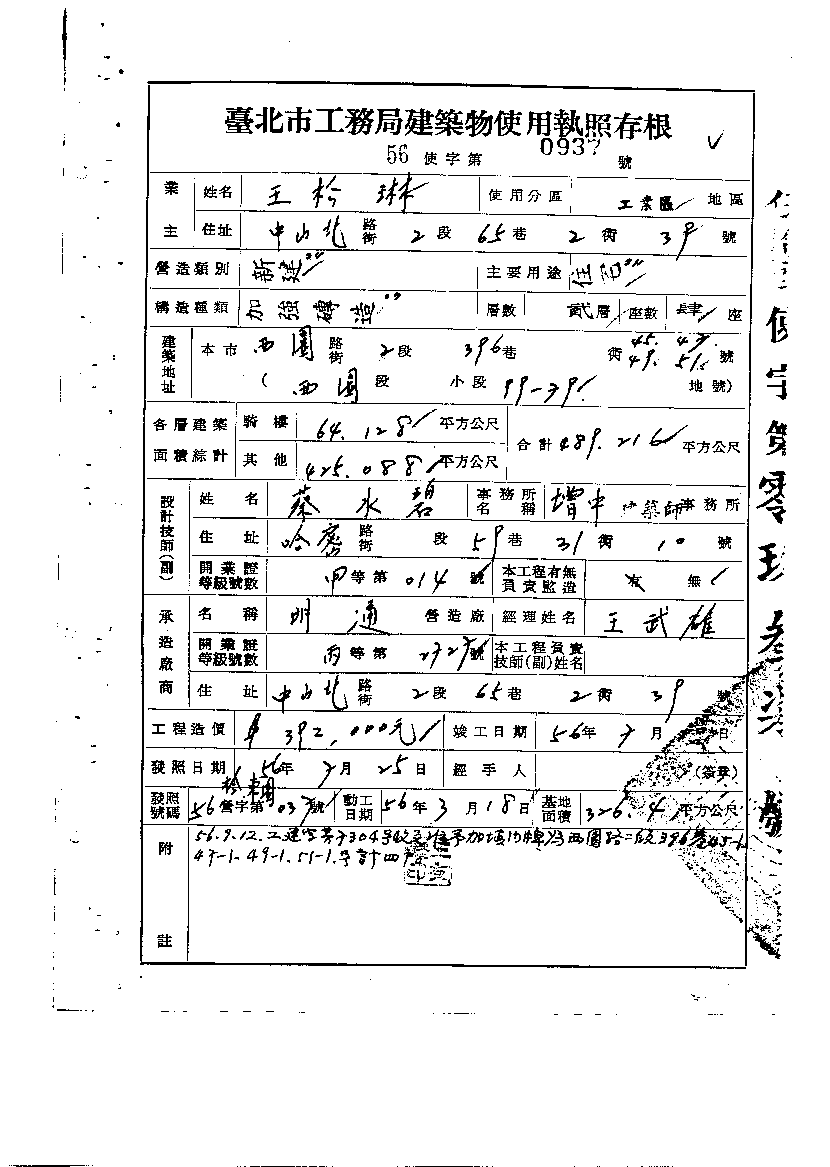 臺北市工務局建築物使用執照存根
56 使字第 0937 號
業主 姓名 王 松 琳 使用分區 工業區 地區
住址 中山北 路街 2 段 65 巷 2 街 39 號
營造類別 新建 主要用途 住宅
構造種類 加強磚造 層數 貳層 座數 肆 座
建築地址 本市 西園 路街 2 段 396 巷 街 45. 47. 49. 51. 號
( 西園 段 小段 99-39 地號)
各層建築面積綜計 騎樓 64.128 平方公尺 合計 489.216 平方公尺
其他 425.088 平方公尺
設計技師(副) 姓名 蔡 水 碧 事務所名稱 增中 建築師 事務所
住址 哈密 路街 段 59 巷 31 街 10 號
開業證等級號數 甲 等第 014 號 本工程有無負責監造 有 無
承造廠商 名稱 明 通 營造廠 經理姓名 王 武 雄
開業證等級號數 丙 等第 號 本工程負責技師(副)姓名
住址 中山北 路街 2 段 65 巷 2 街 39 號
工程造價 392,000元 竣工日期 56年 7 月 日
發照日期 56年 7月 25日 經手人 (簽章)
發照號碼 56 營字第 037 號 動工日期 56年 3月 18日 基地面積 326.4 平方公尺
附註 56.9.12.工建字第 304 號 准予加填門牌為西園路二段396巷45-1
47-1. 49-1. 51-1. 號計四戶
使字第零玖叁柒號